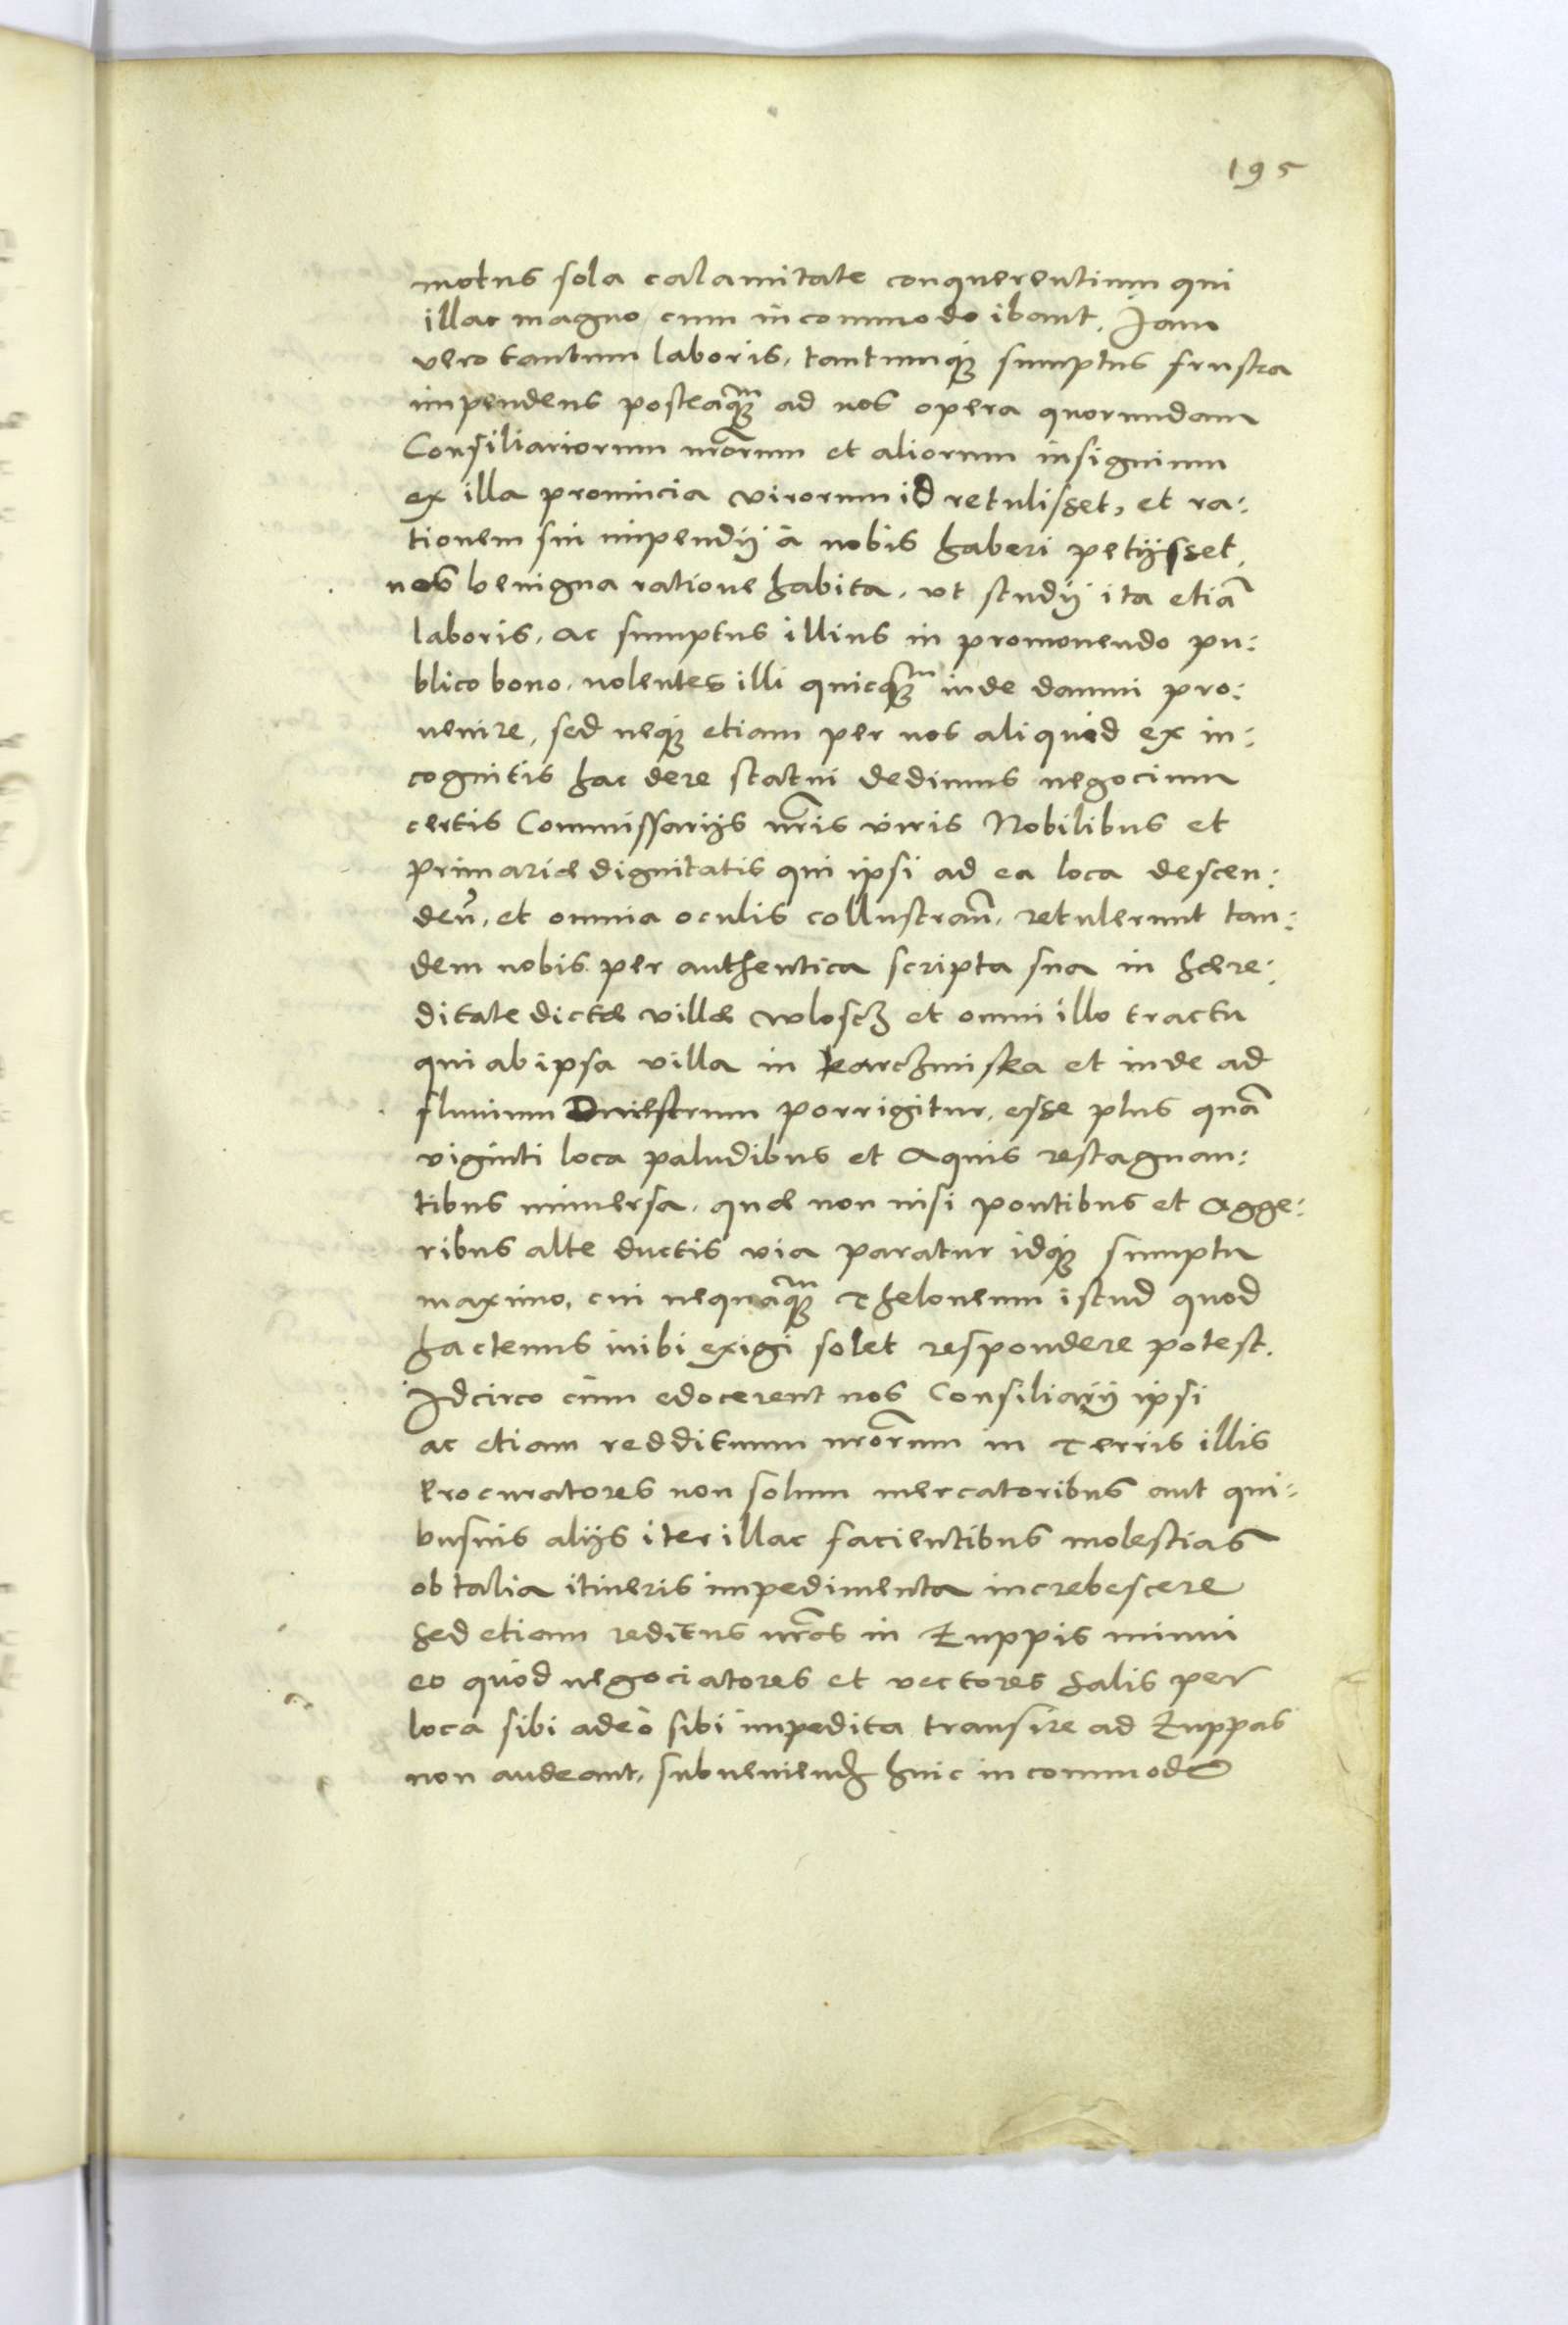 195
motus sola calamitate conquerentium qui
illac magno cum incommodo ibant. Jam
vero tantum laboris, tantumq; sumptus frustra
impendens posteaq̃m ad nos opera quorumdam
Consiliariorum nr̃orum et aliorum insignium
ex illa prouincia virorum id retulisset, et ra:
tionem sui impendij à nobis haberi petijsset,
nos benigna ratione habita, ut studij ita etiã
laboris, ac sumptus illius in promouendo pu:
blico bono, nolentes illi quicq̃m inde damni pro:
uenire, sed neq; etiam per nos aliquid ex in:
cognitis hac dere statui dedimus negocium
certis Commissarijs nr̃is viris Nobilibus et
Primariæ dignitatis qui ipsi ad ea loca descen:
deñ, et omnia oculis collustrañ, retulerunt tan:
dem nobis per authentica scripta sua in hære:
ditate dictæ villæ Wloscz et omni illo tractu
qui ab ipsa villa in karczmiska et inde ad
fluuium Dniestrum porrigitur, esse plus quã
viginti loca paludibus et Aquis restagnan:
tibus immersa, quæ non nisi pontibus et Agge:
ribus alte ductis via paratur idq; sumptu
maximo, cui nequaq̃m Theloneum istud quod
hactenus inibi exigi solet respondere potest.
Idcirco cùm edocerent nos Consiliarij ipsi
ac etiam reddituum nr̃orum in Terris illis
Procuratores non solum mercatoribus aut qui:
busuis alijs iter illac facientibus molestias
ob talia itineris impedimenta increbescere
Sed etiam reditus nr̃os in Zuppis minui
eo quòd negociatores et vectores Salis per
loca sibi adeò sibi impedita transire ad Zuppas
non audeant, subueniend huic incommodo